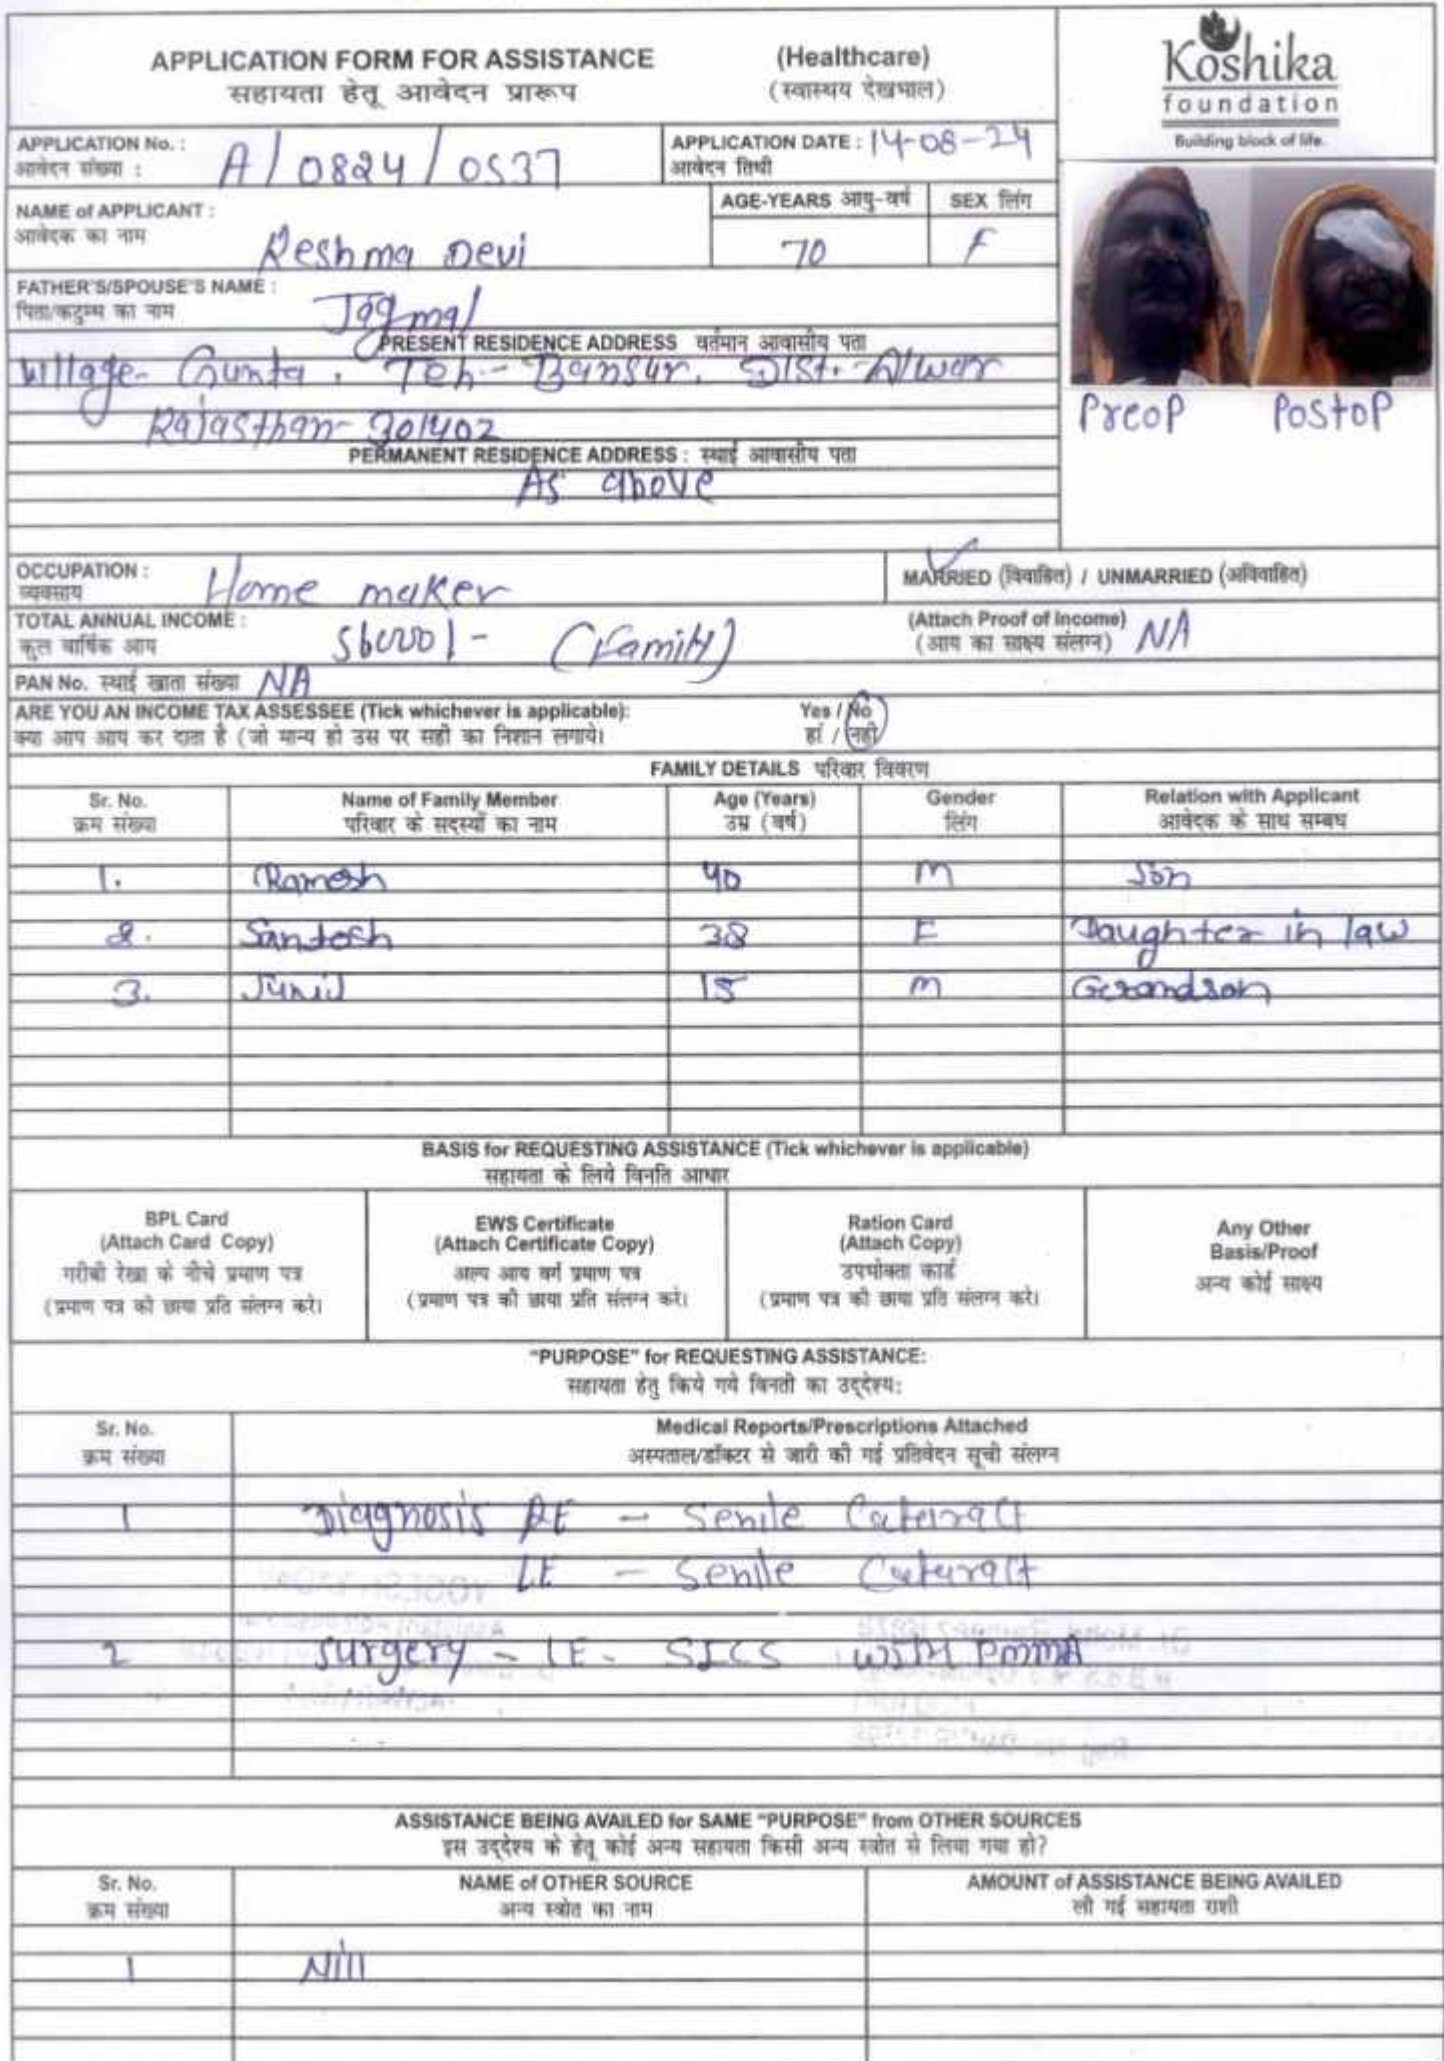 APPLICATION FORM FOR ASSISTANCE (Healthcare)
सहायता हेतू आवेदन प्रारूप (स्वास्थय देखभाल)
Koshika
foundation
Building block of life.
APPLICATION No. : A/0824/0537
आवेदन संख्या :
APPLICATION DATE : 14-08-24
आवेदन तिथी
NAME of APPLICANT :
आवेदक का नाम
Reshma Devi
AGE-YEARS आयु-वर्ष
70
SEX लिंग
F
FATHER'S/SPOUSE'S NAME :
पिता/कटुम्म का नाम
Jagmal
PRESENT RESIDENCE ADDRESS वर्तमान आवासीय पता
Village- Gunta, Teh- Bansur, Dist.- Alwar
Rajasthan- 301402
Preop Postop
PERMANENT RESIDENCE ADDRESS : स्थाई आवासीय पता
As above
OCCUPATION :
व्यवसाय
Home maker
MARRIED (विवाहित) / UNMARRIED (अविवाहित)
TOTAL ANNUAL INCOME :
कुल वार्षिक आय
56000/- (Family)
(Attach Proof of Income)
(आय का साक्ष्य संलग्न) NA
PAN No. स्थाई खाता संख्या NA
ARE YOU AN INCOME TAX ASSESSEE (Tick whichever is applicable): Yes / No
क्या आप आय कर दाता है (जो मान्य हो उस पर सही का निशान लगाये। हां / नही
FAMILY DETAILS परिवार विवरण
Sr. No. Name of Family Member Age (Years) Gender Relation with Applicant
क्रम संख्या परिवार के सदस्यों का नाम उम्र (वर्ष) लिंग आवेदक के साथ सम्बध
1. Ramesh 40 M Son
2. Santosh 38 F Daughter in law
3. Sunil 15 M Gerandson
BASIS for REQUESTING ASSISTANCE (Tick whichever is applicable)
सहायता के लिये विनति आधार
BPL Card
(Attach Card Copy)
गरीबी रेखा के नीचे प्रमाण पत्र
(प्रमाण पत्र की छाया प्रति संलग्न करे।
EWS Certificate
(Attach Certificate Copy)
अल्प आय वर्ग प्रमाण पत्र
(प्रमाण पत्र की छाया प्रति संलग्न करे।
Ration Card
(Attach Copy)
उपभोक्ता कार्ड
(प्रमाण पत्र की छाया प्रति संलग्न करे।
Any Other
Basis/Proof
अन्य कोई साक्ष्य
"PURPOSE" for REQUESTING ASSISTANCE:
सहायता हेतु किये गये विनती का उद्देश्य:
Sr. No. Medical Reports/Prescriptions Attached
क्रम संख्या अस्पताल/डॉक्टर से जारी की गई प्रतिवेदन सूची संलग्न
1 Diagnosis RE - Senile Cataract
LE - Senile Cataract
2 Surgery - LE. SICS with PMMA
ASSISTANCE BEING AVAILED for SAME "PURPOSE" from OTHER SOURCES
इस उद्देश्य के हेतू कोई अन्य सहायता किसी अन्य स्त्रोत से लिया गया हो?
Sr. No. NAME of OTHER SOURCE AMOUNT of ASSISTANCE BEING AVAILED
क्रम संख्या अन्य स्त्रोत का नाम ली गई सहायता राशी
1 Nill